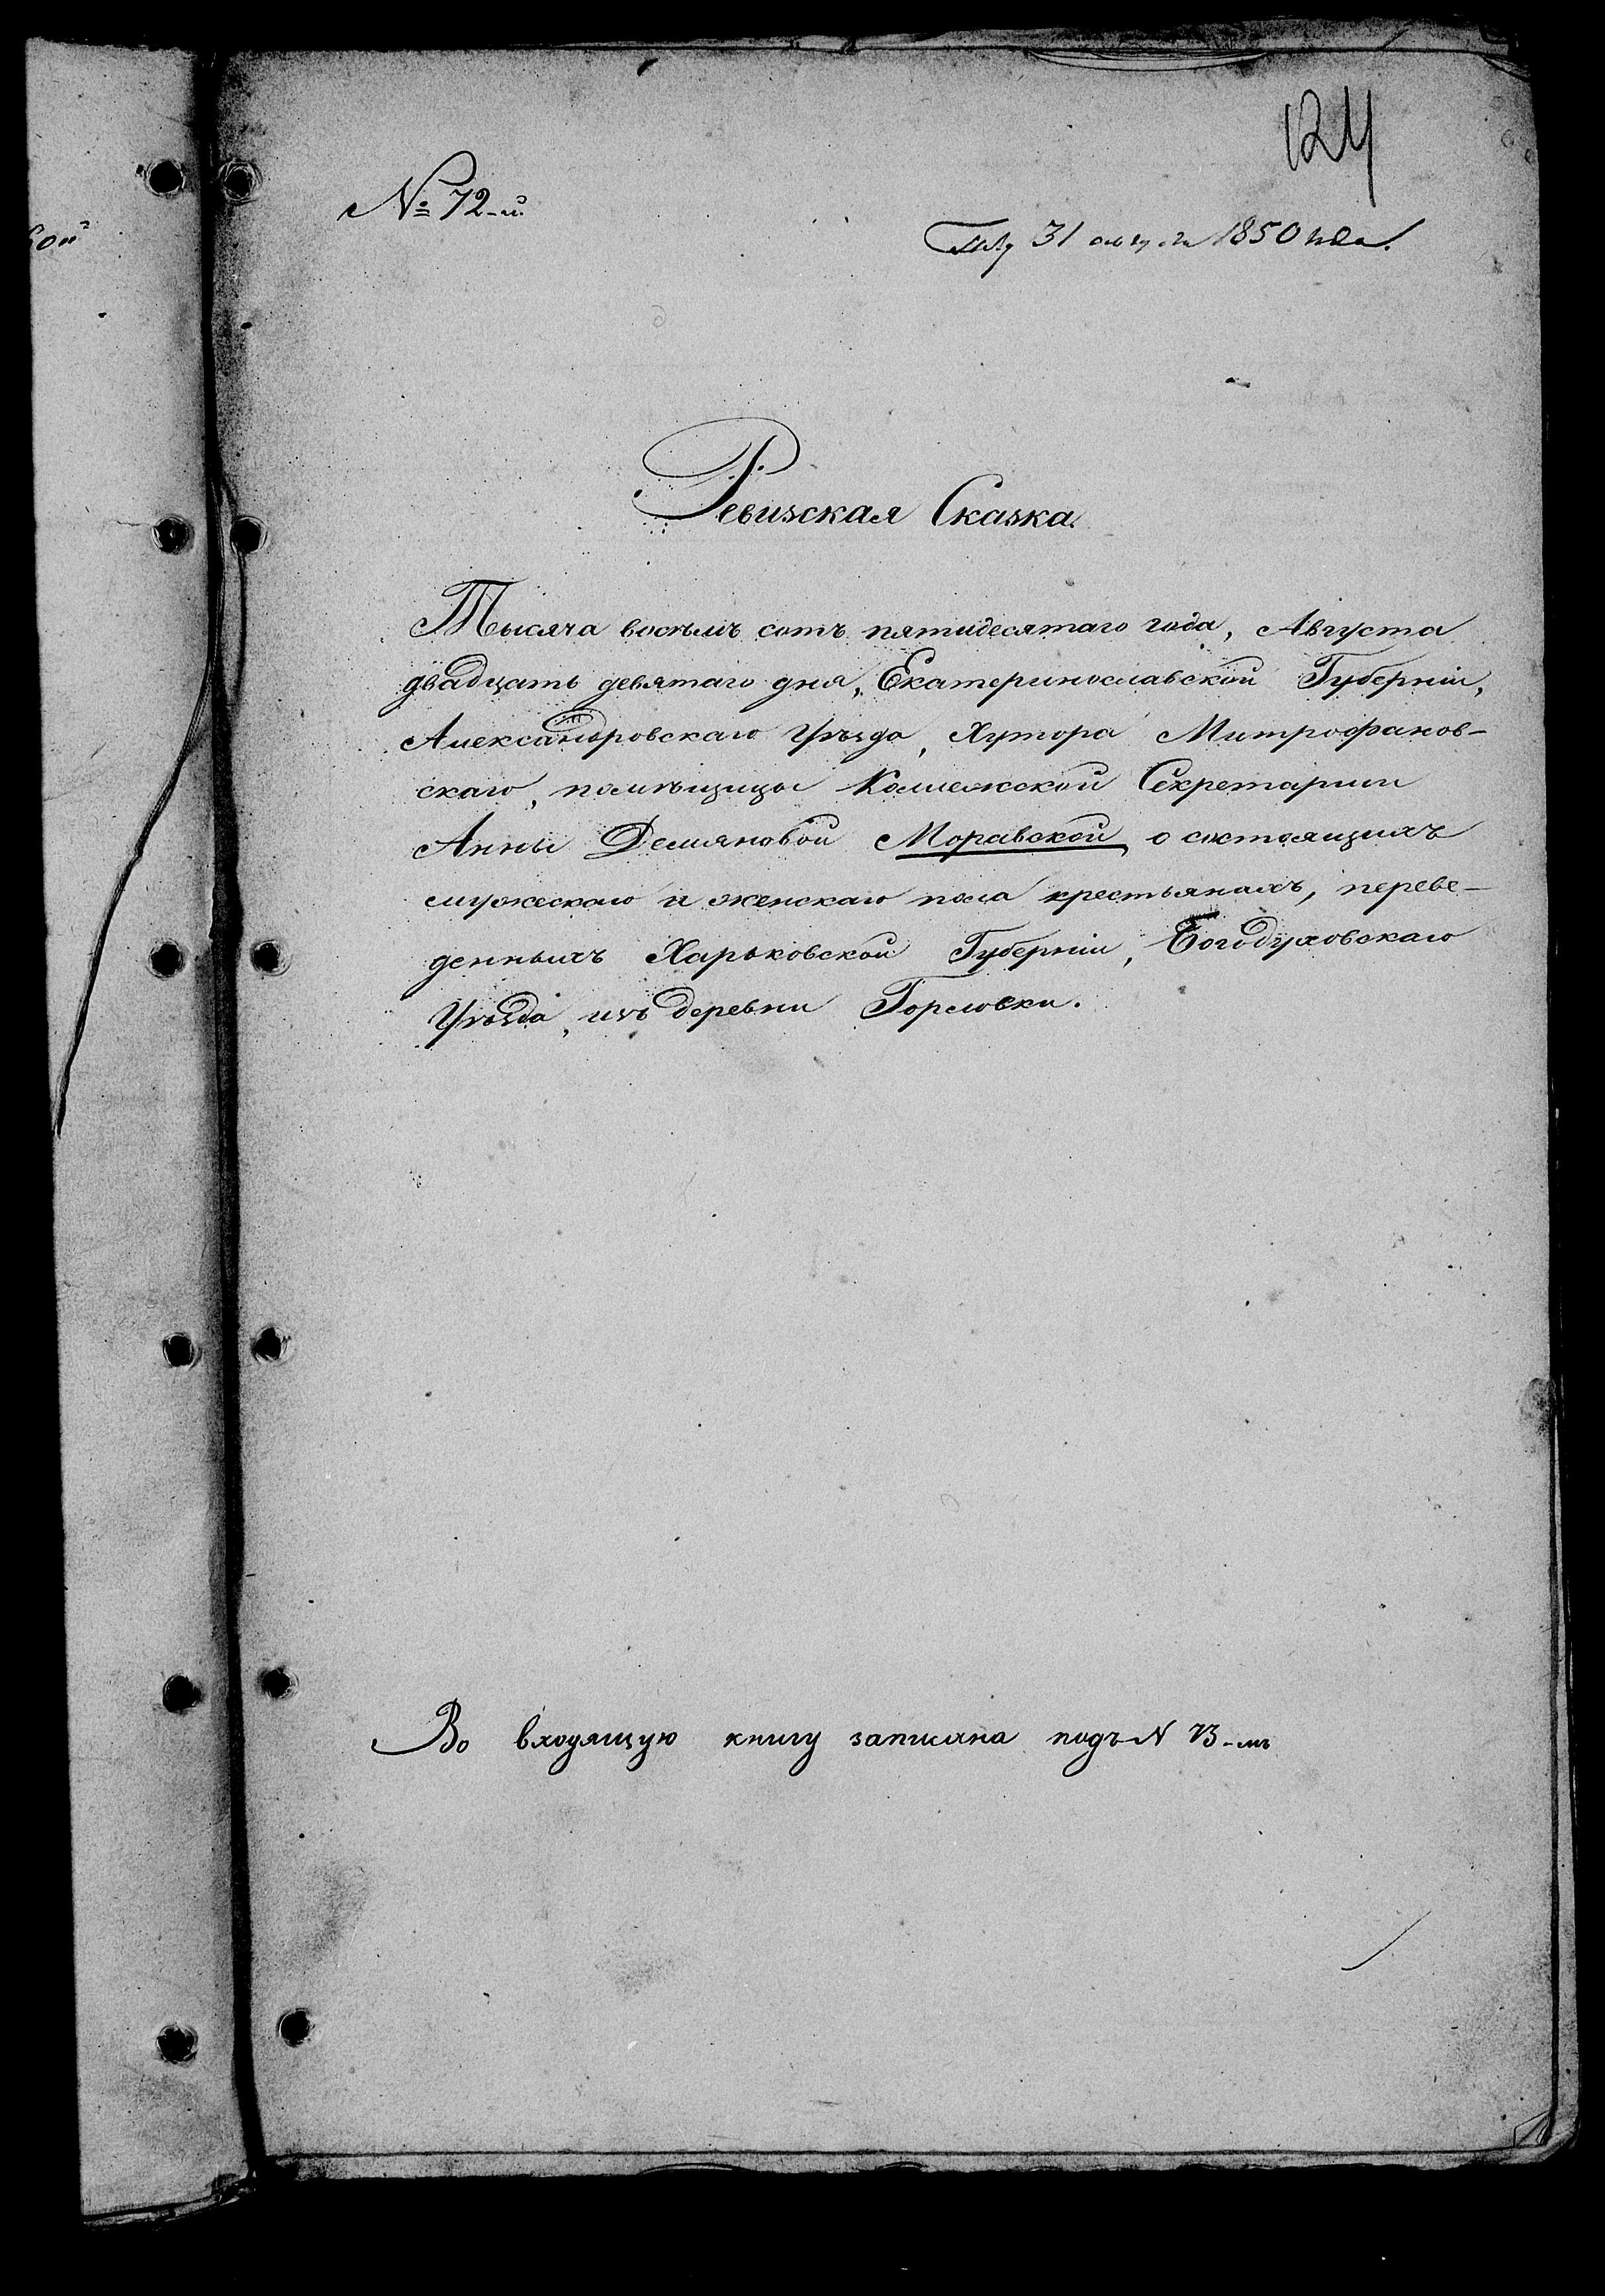 124
№ 72-й.
31 августа 1850 года.
Ревизская Сказка.
Тысяча восемь сотъ пятидесятаго года, Августа
двадцать девятаго дня, Екатеринославской Губерніи,
Александровскаго Уѣзда, Хутора Митрофанов-
скаго, помѣщицы Коллежской Секретарши
Анны Демяновой Моравской, о состоящихъ
мужескаго и женскаго пола крестьянахъ, переве-
денныхъ Харьковской Губерніи, Богодуховскаго
Уѣзда, изъ деревни Горловки.
Во входящую книгу записана подъ N 73-мъ